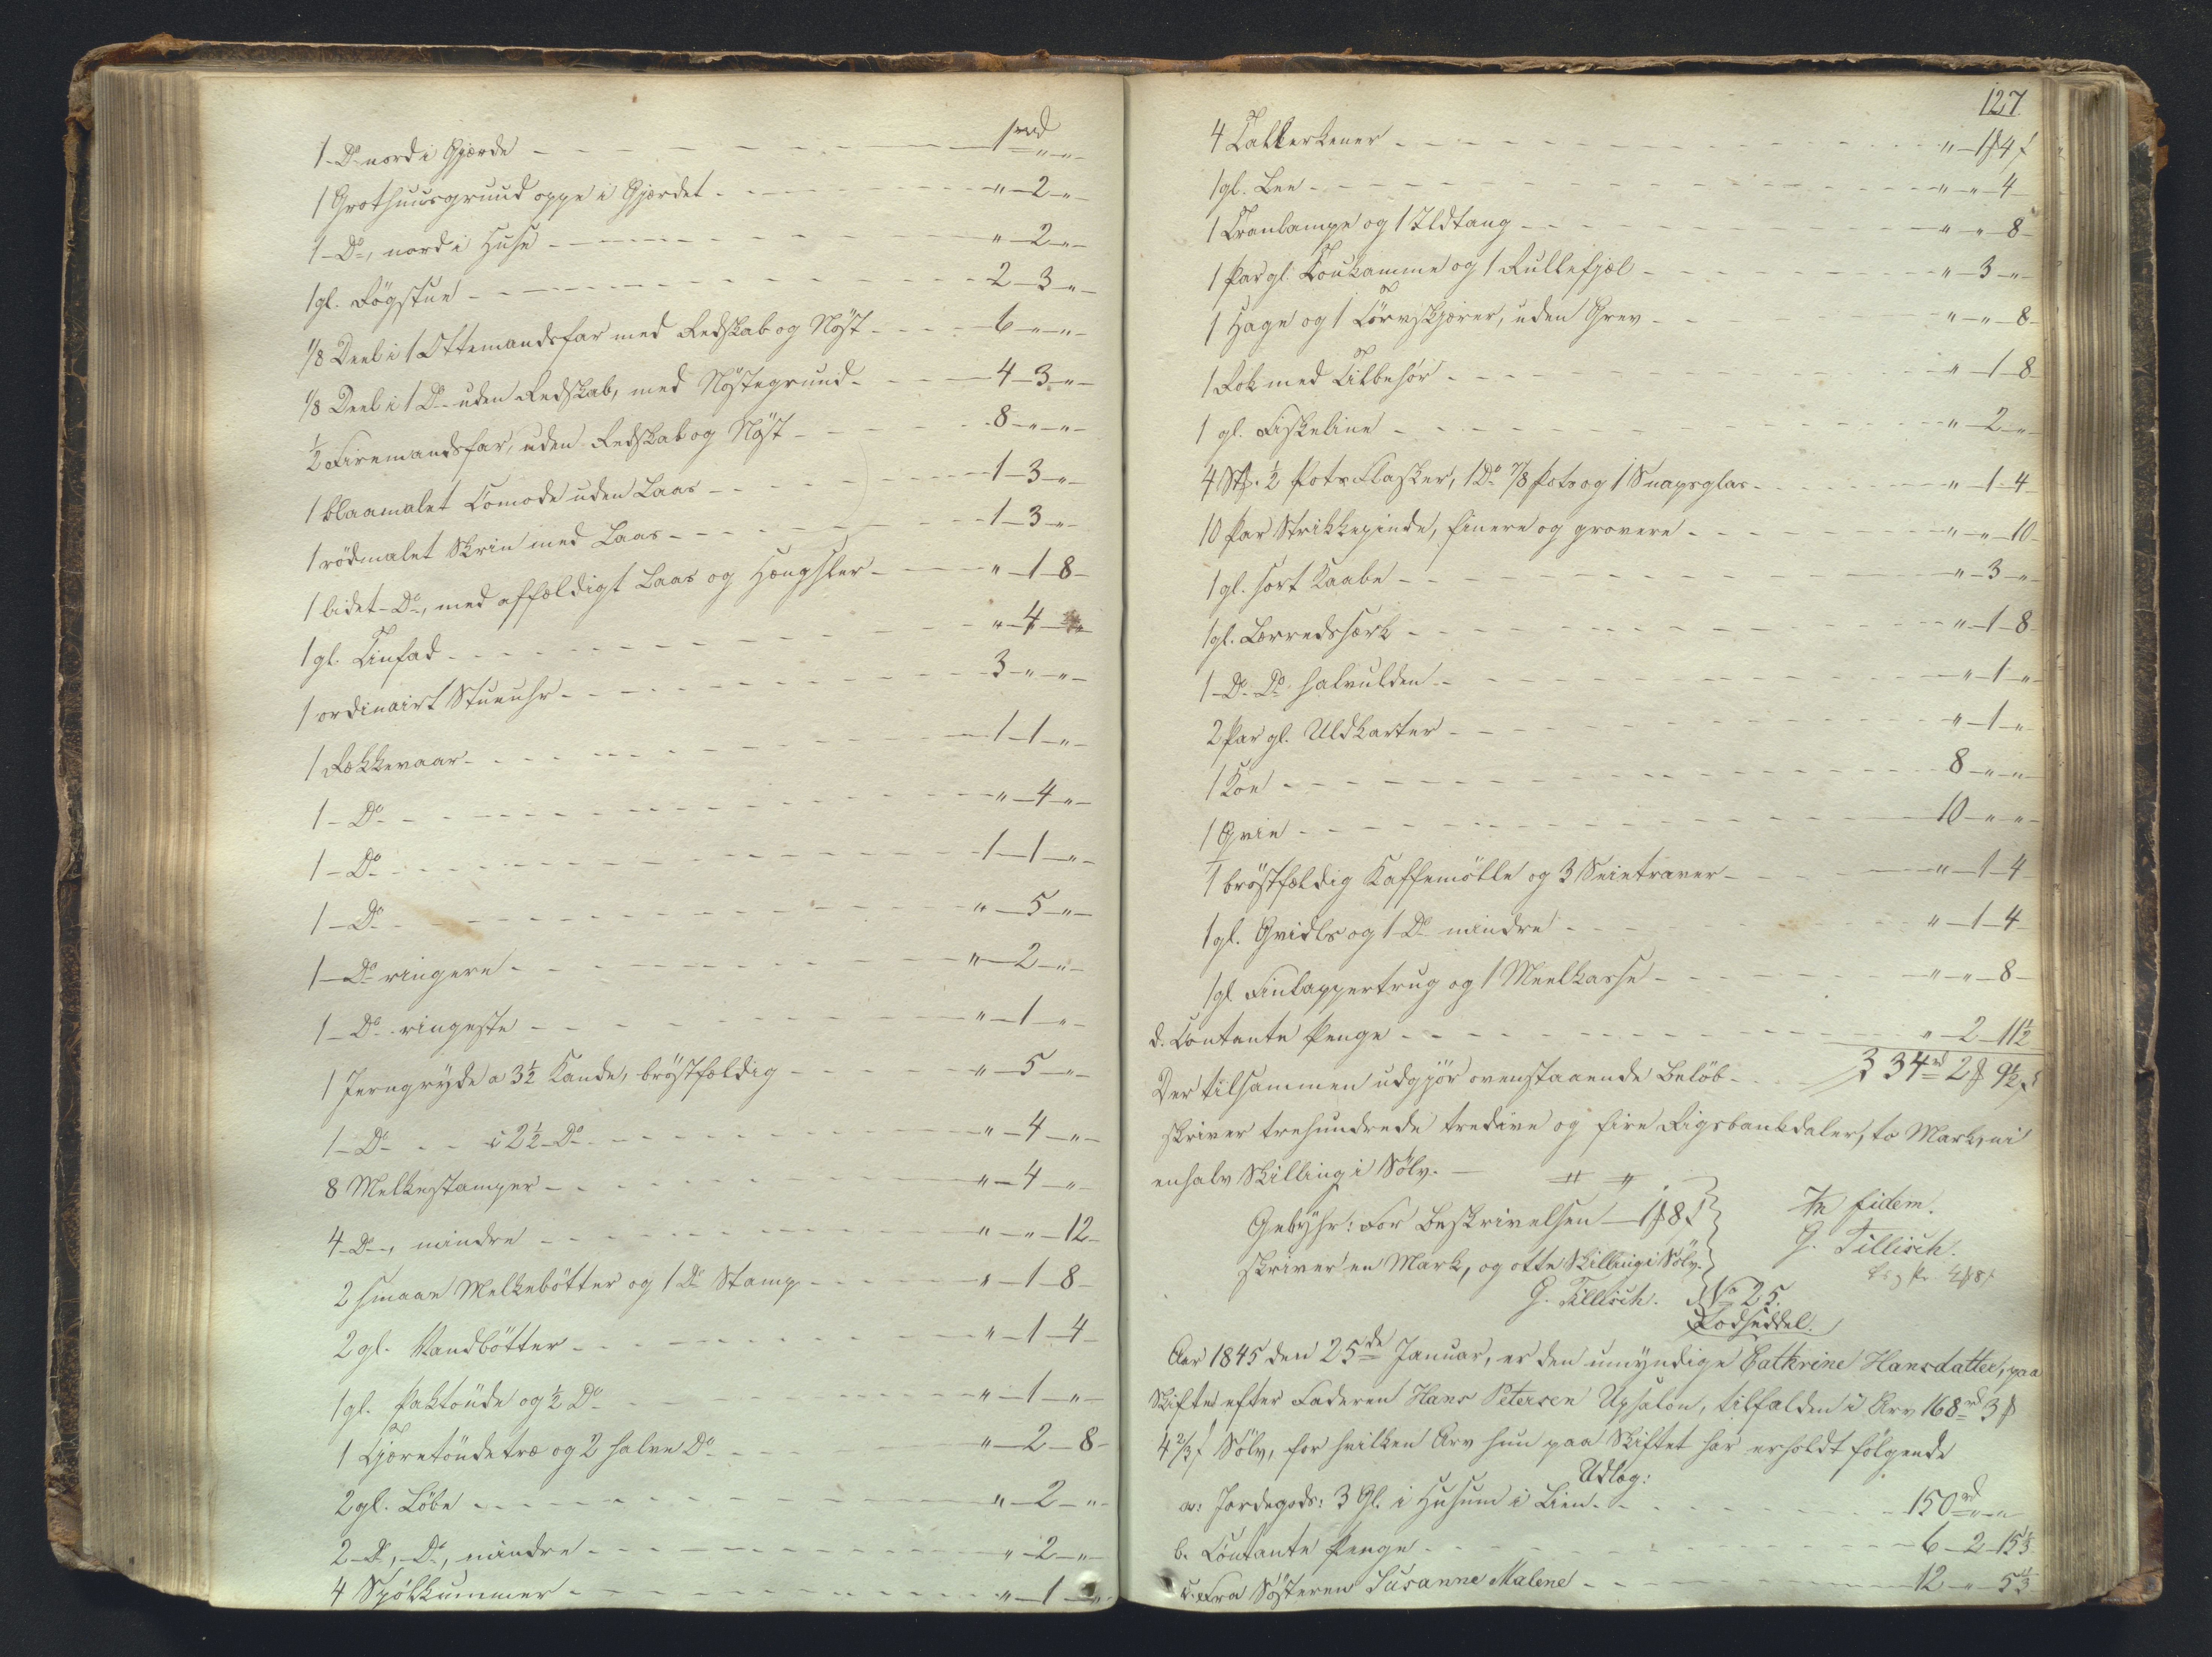 1 - Do nord i Gjærde - - - 1rd „ - „ -
1 Grothuusgrund oppe i Gjærdet - - - „ - 2 - „ -
1 - Do, nord i Huse - - - „ - 2 - „ -
1 gl. Røgstue - - - 2 - 3 - „ -
1/8 Deel i 1 Ottemandsfar med Redskab og Nøst - - - 6 - „ - „ -
1/8 Deel i 1 Do uden Redskab, med Nøstegrund - - - 4 - 3 - „ -
1/2 Firemandsfar, uden Redskab og Nøst - - - 8 - „ - „ -
1 blaamalet Comode uden Laas - - - 1 - 3 - „ -
1 rødmalet Skrin med Laas - - - 1 - 3 - „ -
1 lidet Do, med affældigt Laas og Hængsler - - - „ - 1 - 8 -
1 gl. Tinfad - - - „ - 4 - „ -
1 ordinairt Stueuhr - - - 3 - „ - „ -
1 Rækkevaar - - - 1 - 1 - „ -
1 - Do - - - „ - 4 - „ -
1 - Do - - - 1 - 1 - „ -
1 - Do - - - „ - 5 - „ -
1 - Do ringere - - - „ - 2 - „ -
1 - Do ringeste - - - „ - 1 - „ -
1 Jerngryde a 3½ Kande, brøstfældig - - - „ - 5 - „ -
1 - Do - - a 2½ Do - - - „ - 4 - „ -
8 Melkestamper - - - „ - 4 - „ -
4 - Do, mindre - - - „ - „ - 12 -
2 smaae Melkebøtter og 1 Do Stamp - - - „ - 1 - 8 -
2 gl. Vandbøtter - - - „ - 1 - 4 -
1 gl. Saktønde og ½ Do - - - „ - 1 - „ -
1 Tjæretøndetræ og 2 halve Do - - - „ - 2 - 8 -
2 gl. Løbe - - - „ - 2 - „ -
2 - Do, Do, mindre - - - „ - 2 - „ -
4 Spølkummer - - - „ - 1 - „ -
127.
4 Tallerkener - - - „ - 1 ₰ 4 ß
1 gl. Lee - - - „ - „ - 4 -
1 Tranlampe og 1 Ildtang - - - „ - „ - 8 -
1 Par gl. Toukamme og 1 Rullefjæl - - - „ - 3 - „ -
1 Hage og 1 Tørvskjærer, uden Grev - - - „ - „ - 8 -
1 Rok med Tilbehør - - - „ - 1 - 8 -
1 gl. Fiskeline - - - „ - 2 - „ -
4 Stk. ½ Pots Flasker, 1 Do 7/8 Pots og 1 Snapsglas - - - „ - 1 - 4 -
10 Par Strikkepinde, finere og grovere - - - „ - „ - 10 -
1 gl. sort Kaabe - - - „ - 3 - „ -
1 gl. Lærredssærk - - - „ - 1 - 8 -
1 - Do Do halvulden - - - „ - 1 - „ -
2 Par gl. Uldkarter - - - „ - 1 - „ -
1 Koe - - - 8 - „ - „ -
1 Qvie - - - 10 - „ - „ -
1 brøstfældig Kaffemølle og 3 Seietraver - - - „ - 1 - 4 -
1 gl. Gridls og 1 Do mindre - - - „ - 1 - 4 -
1 gl. Finlappertrug og 1 Meelkasse - - - „ - „ - 8 -
d. Contante Penge - - - „ - 2 - 11½
Der tilsammen udgjør ovenstaaende Beløb - - - 334rd 2 ₰ 9½ ß
skriver trehundrede tredive og fire Rigsbankdaler, to Mark, ni
enhalv Skilling i Sølv. -
Gebyhr: For Beskrivelsen - 1 ₰ 8 ß
In fidem.
skriver en Mark, og otte Skilling i Sølv.
G. Tillisch.
G. Tillisch.
No 25.
Lodseddel.
Aar 1845 den 25de Januar, er den umyndige Cathrine Hansdatter, paa
Skiftet efter Faderen Hans Petersen Upsalen, tilfalden i Arv 168rd 3 ₰
4 2/3 ß Sølv, for hvilken Arv hun paa Skiftet har erholdt følgende
Udlæg:
a. Jordegods: 3 Gl. i Husum i Lien - - - 150rd „ - „
b. Contante Penge - - - 6 - 2 - 15⅓
c. Fra Søsteren Susanne Malene - - - 12 - „ - 5⅓